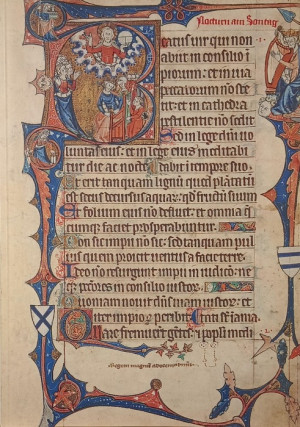 Nocturn am Sonntag
Beatus vir qui non
abiit in consilio im
piorum: et in via
peccatorum non ste
tit: et in cathedra
pestilentie non sedit
Sed in lege dñi vo
luntas eius: et in lege eius meditabi
tur die ac nocte
Et erit tanquam lignũ quod plãtatũ
est secus decursus aquarũ: qd fructũ suum
dabit in tempore suo
Et folium eius nõ defluet: et omnia q̃
cumq; faciet prosperabuntur
Non sic impii nõ sic: sed tanquam pul
uis quem proicit ventus a facie terre
Ideo nõ resurgunt impii in iudicio: ne
q; pctõres in consilio iustorũ
Quoniam novit dñs viam iustorũ: et
iter impiorũ peribit
Quare fremuerũt gẽtes: et ppl'i medi